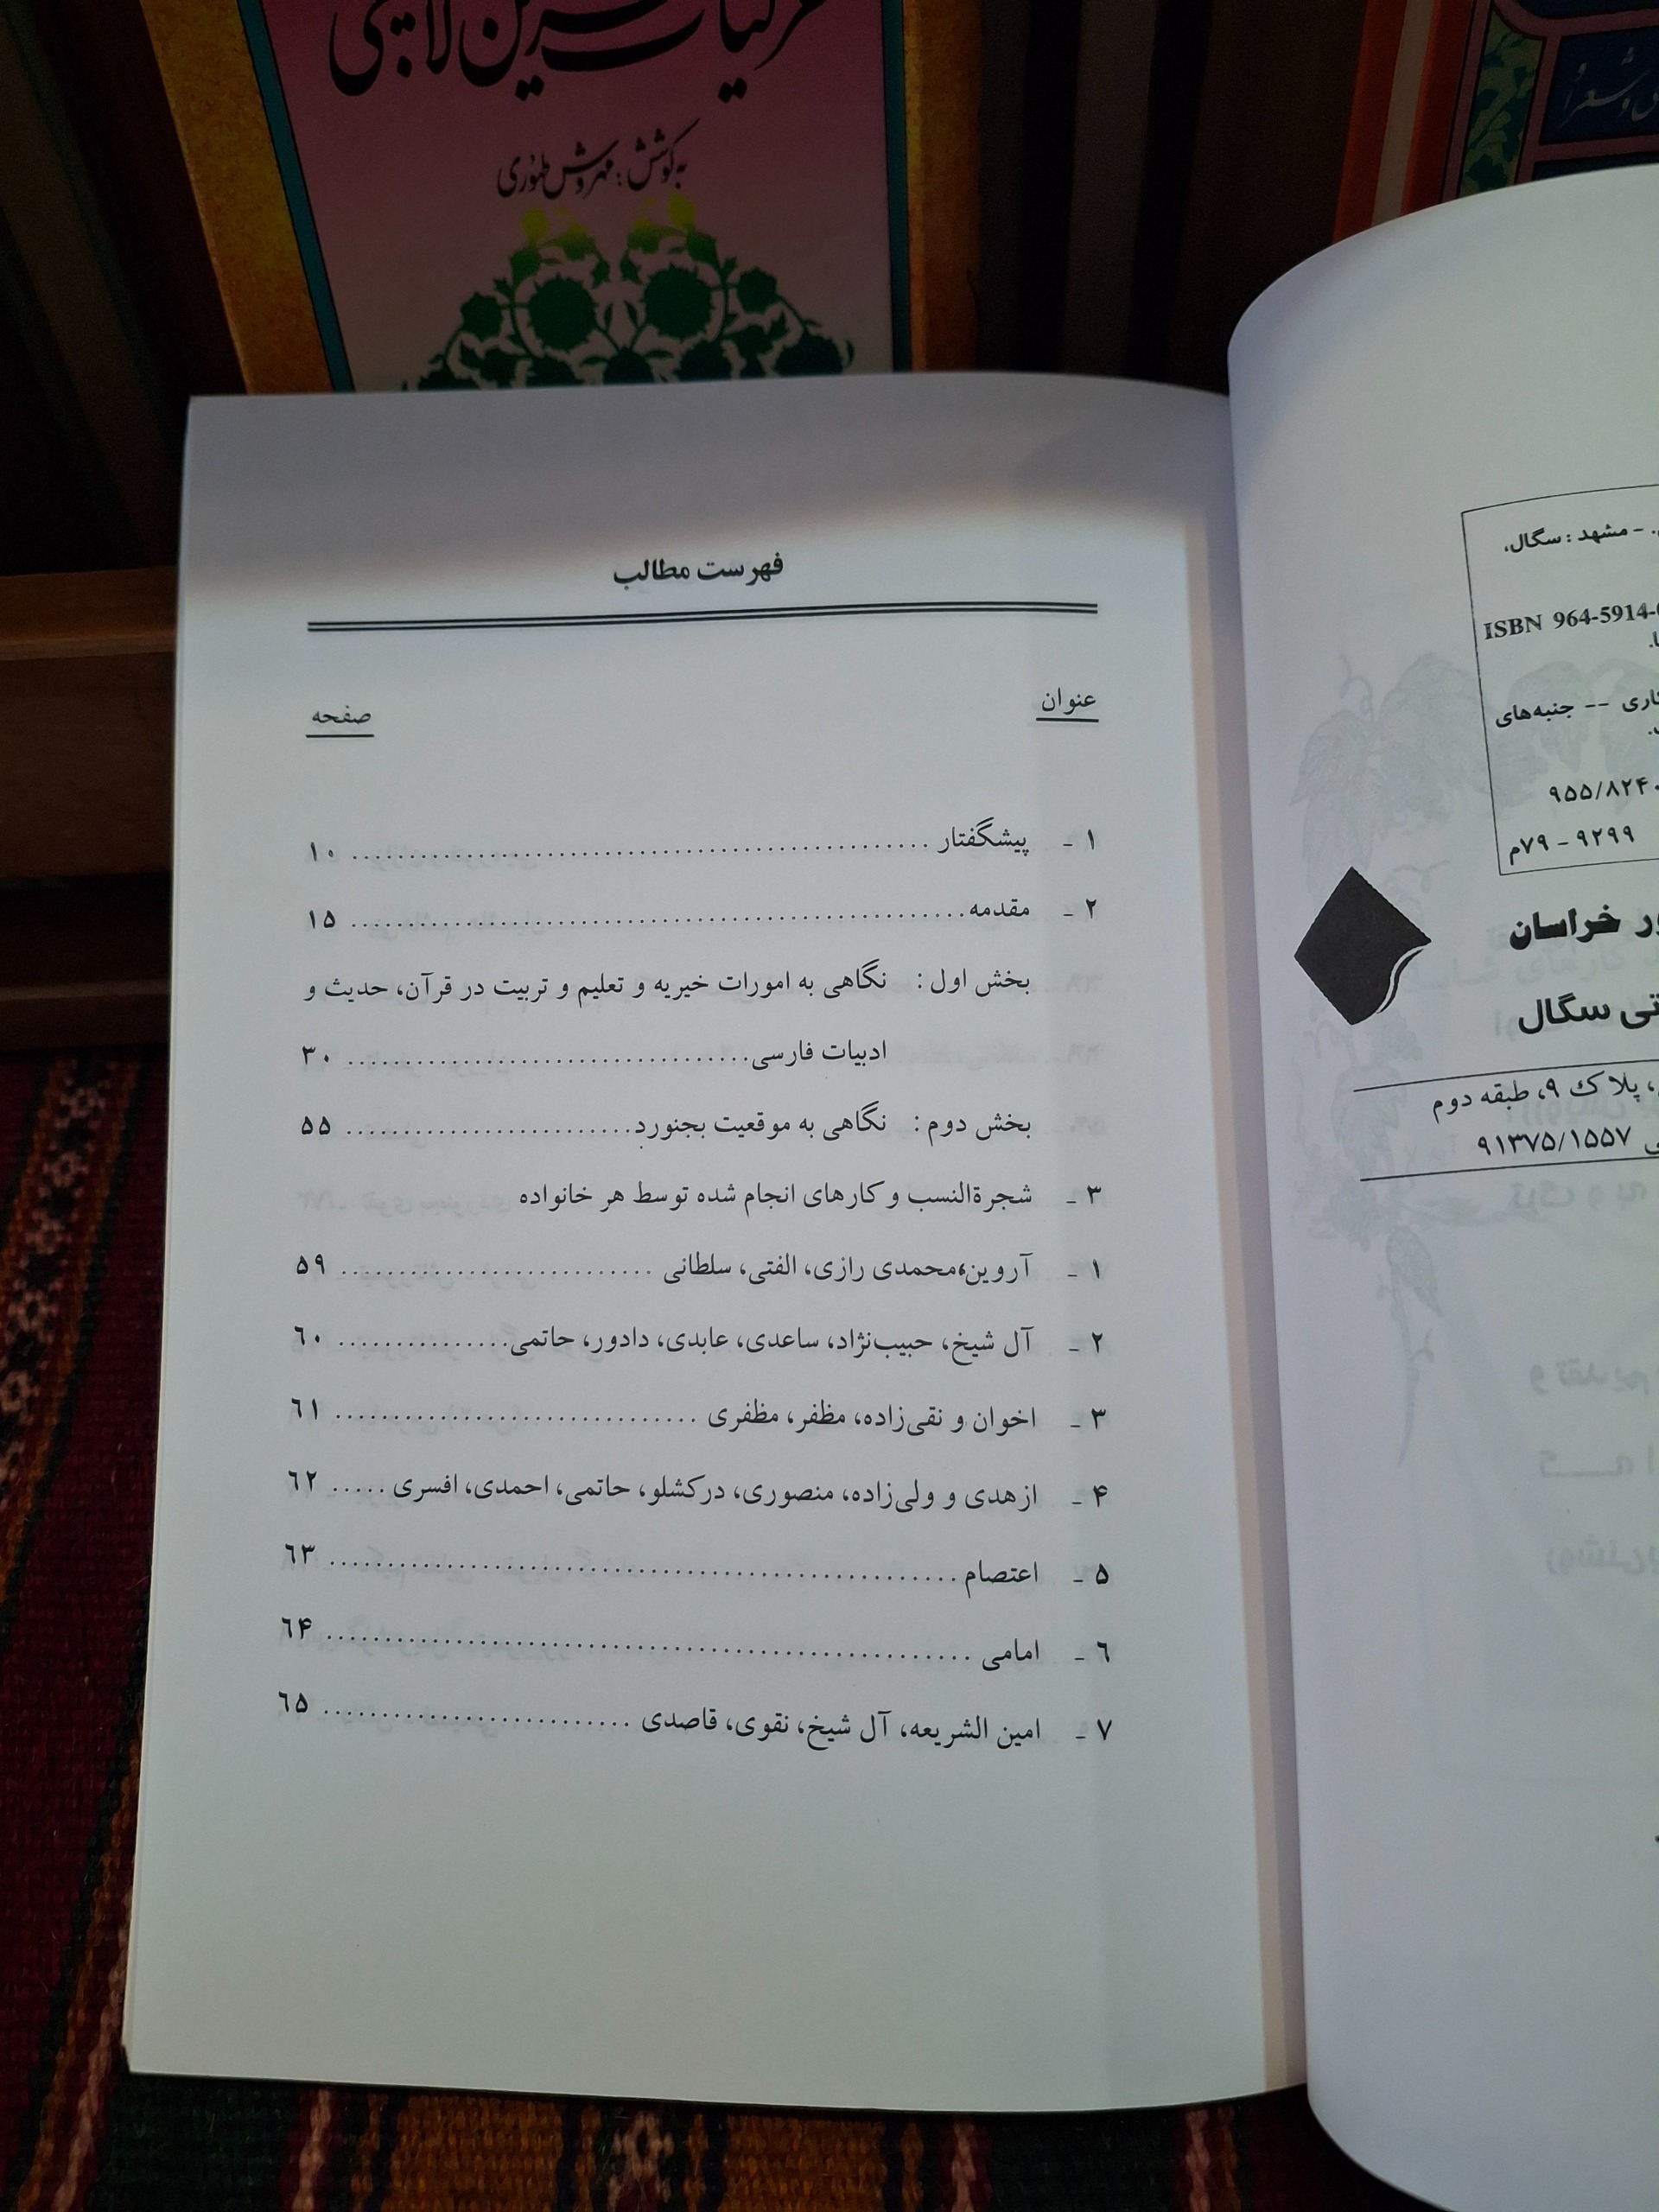 به کوشش : مهروش طهوری
فهرست مطالب
عنوان صفحه
۱ - پیشگفتار ۱۰
۲ - مقدمه ۱۵
بخش اول : نگاهی به امورات خیریه و تعلیم و تربیت در قرآن، حدیث و
ادبیات فارسی ۳۰
بخش دوم : نگاهی به موقعیت بجنورد ۵۵
۳ - شجرةالنسب و کارهای انجام شده توسط هر خانواده
۱ - آروین،محمدی رازی، الفتی، سلطانی ۵۹
۲ - آل شیخ، حبیب‌نژاد، ساعدی، عابدی، دادور، حاتمی ۶۰
۳ - اخوان و نقی‌زاده، مظفر، مظفری ۶۱
۴ - ازهدی و ولی‌زاده، منصوری، درکشلو، حاتمی، احمدی، افسری ۶۲
۵ - اعتصام ۶۳
۶ - امامی ۶۴
۷ - امین الشریعه، آل شیخ، نقوی، قاصدی ۶۵
- مشهد : سگال،
ISBN 964-5914-
-- جنبه‌های
۹۵۵/۸۲۴۰
۹۲۹۹ - ۷۹م
خراسان
سگال
، پلاک ۹، طبقه دوم
۹۱۳۷۵/۱۵۵۷